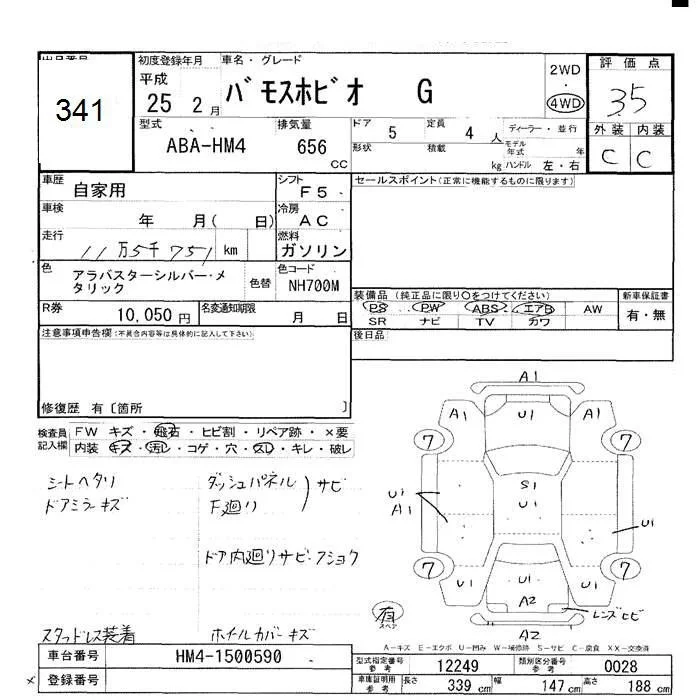 出品番号
341
初度登録年月
平成
25 2月
車名・グレード
バモスホビオ G
2WD
・
4WD
評価点
3.5
外装 内装
C C
型式
ABA-HM4
排気量
656
CC
ドア 5 定員 4人
形状 積載 kg
ディーラー・並行
モデル年式 年
ハンドル 左・右
車歴
自家用
シフト
F5
セールスポイント(正常に機能するものに限ります)
車検
年 月( 日)
冷房
AC
走行
11万5千751 km
燃料
ガソリン
色
アラバスターシルバー・メ
タリック
色替
色コード
NH700M
R券
10,050円
名変通知期限
月 日
装備品(純正品に限り○をつけてください)
PS PW ABS エアB AW
SR ナビ TV カワ
新車保証書
有・無
後日品
注意事項申告欄(不具合内容等は具体的に記入して下さい)
修復歴 有〔箇所 〕
検査員
記入欄
FW キズ・飛石・ヒビ割・リペア跡・×要
内装 キズ・汚レ・コゲ・穴・スレ・キレ・破レ
シートヘタリ
ドアミラーキズ
ダッシュパネル
F廻り
サビ
ドア内廻りサビ・フショク
スタッドレス装着
ホイルカバーキズ
A1
A1 U1 A1
7 7
S1
U1
U1
A1
U1
7 7
U1 U1 U1
A2
レンズヒビ
A2
有
スペア
A-キズ E-エクボ U-凹み W-補修跡 S-サビ C-腐食 XX-交換済
車台番号
HM4-1500590
登録番号
×
型式指定番号
参考
12249
類別区分番号
参考
0028
車庫証明用
参考
長さ 339 cm 幅 147 cm 高さ 188 cm